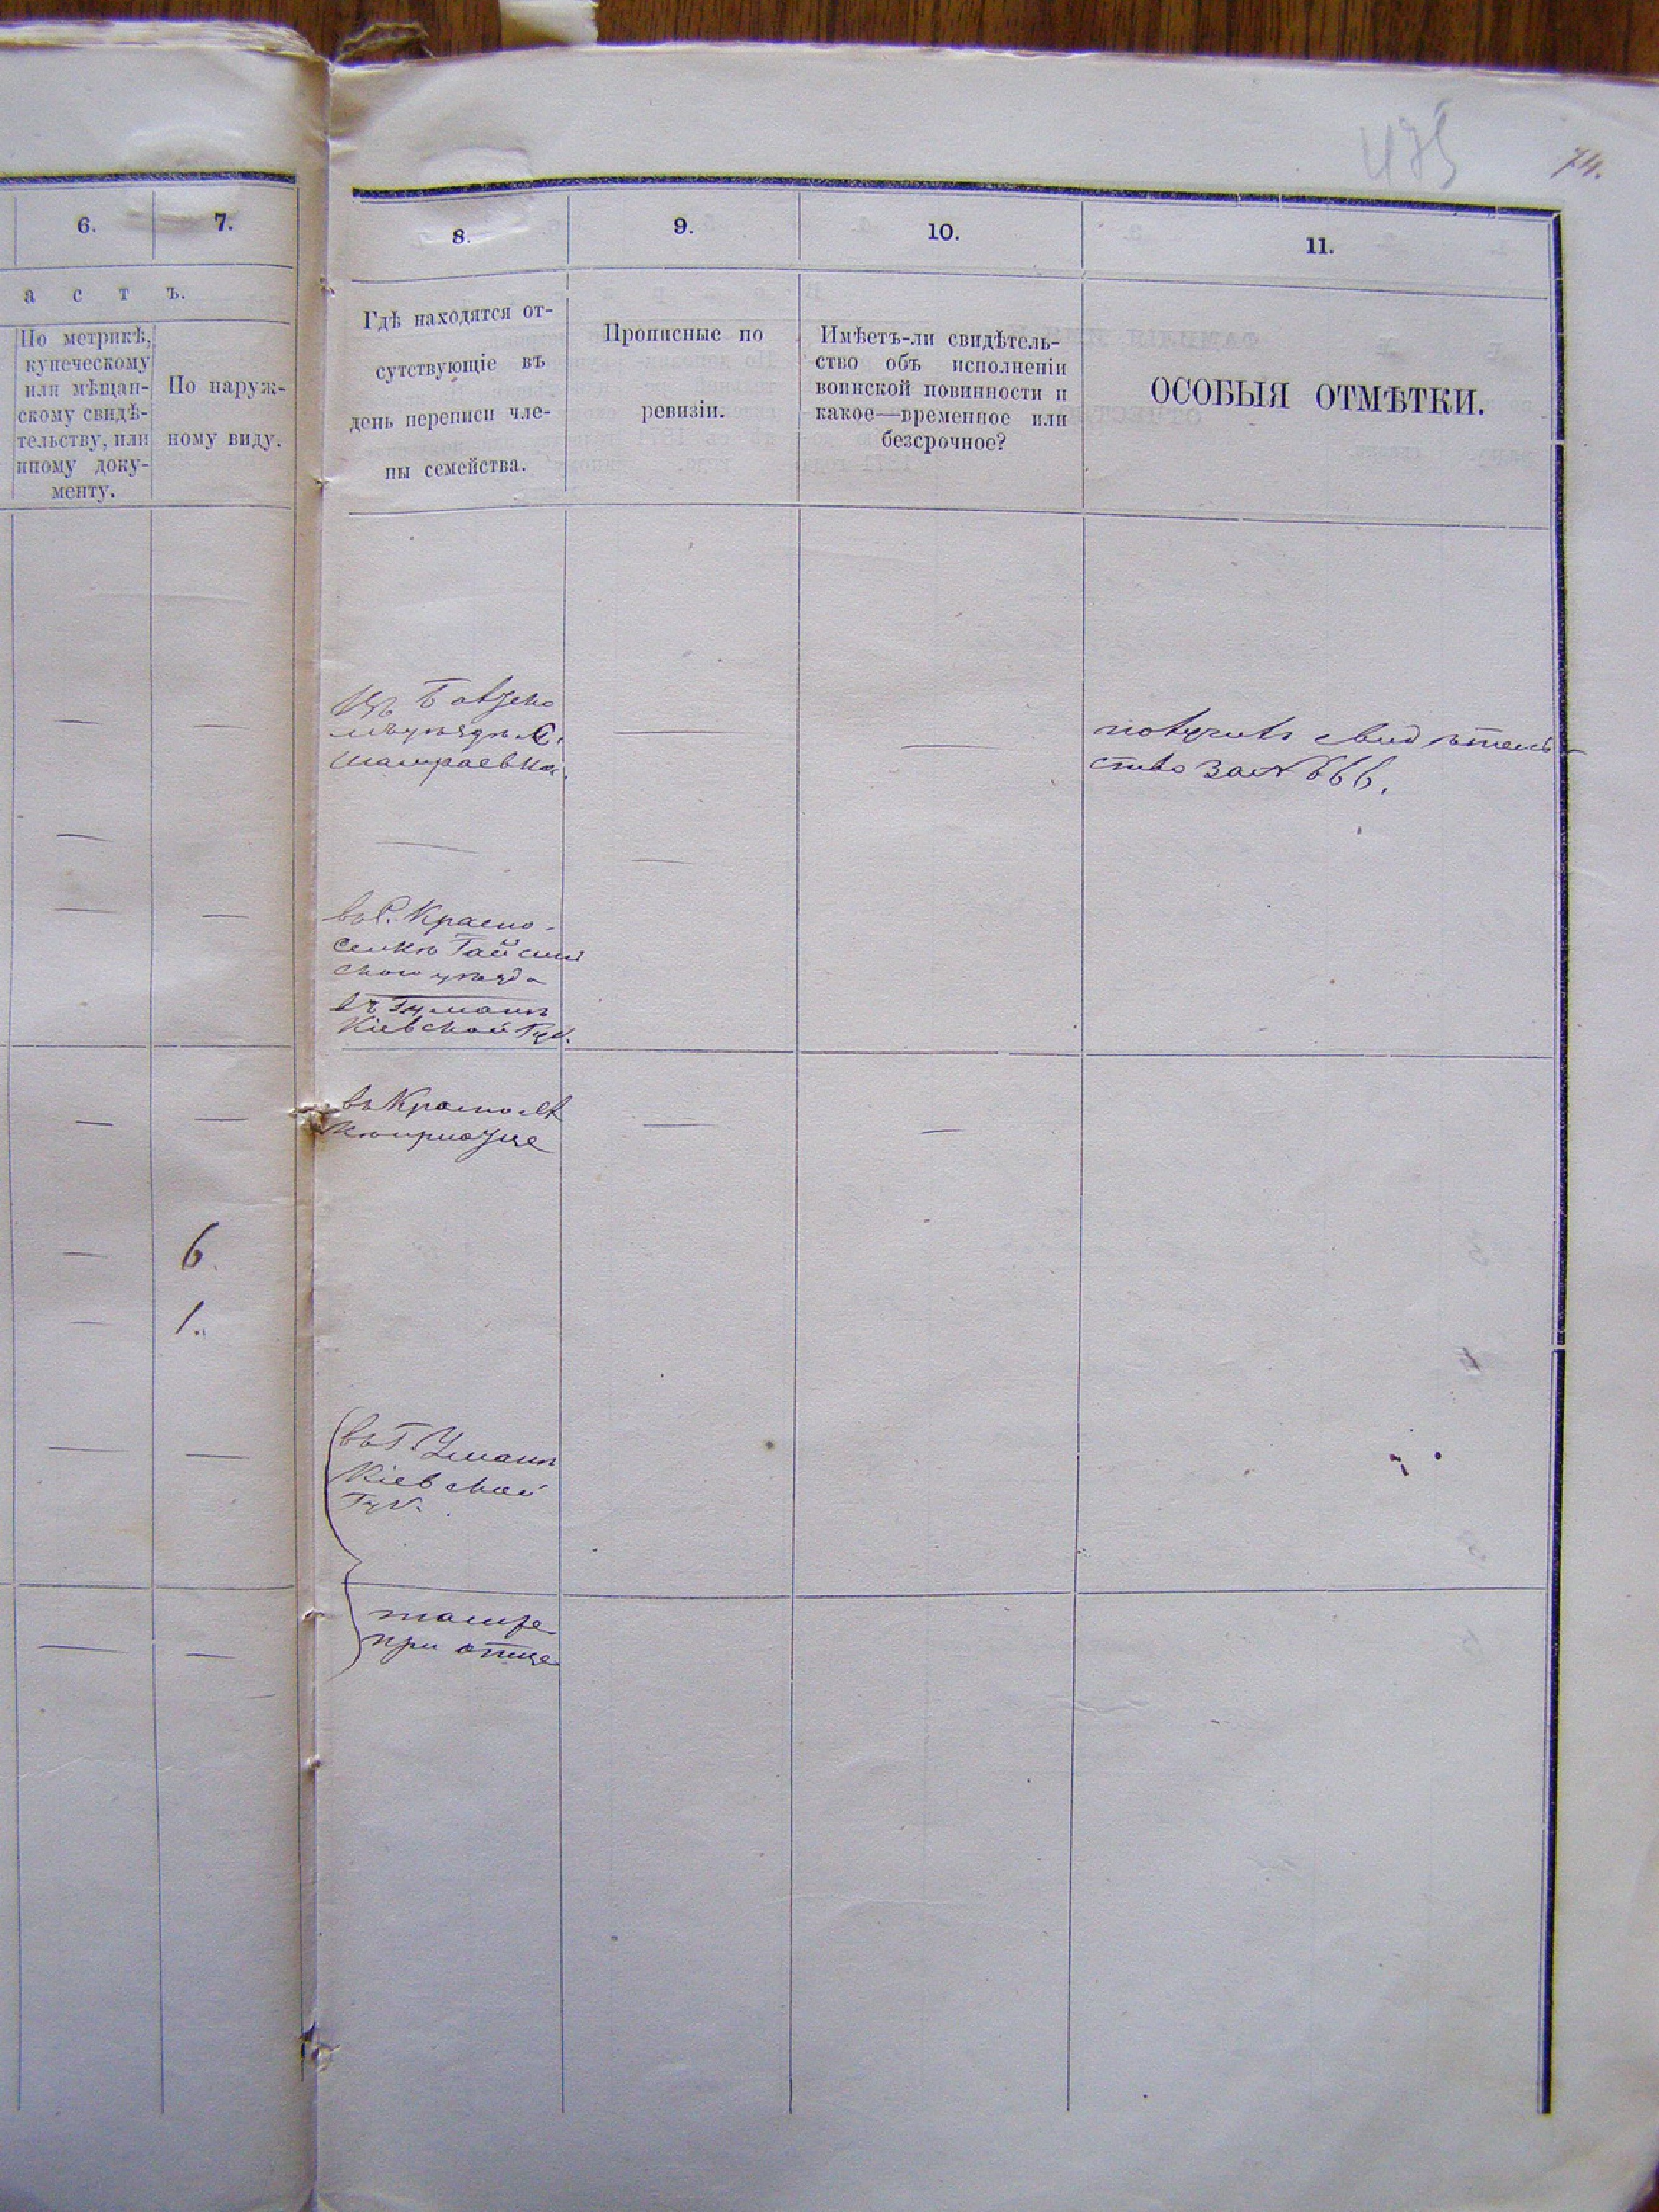 475
74.
6.
7.
8.
9.
10.
11.
а с т ъ.
По метрикѣ,
купеческому
или мѣщан-
скому свидѣ-
тельству, или
иному доку-
менту.
По наруж-
ному виду.
Гдѣ находятся от-
сутствующіе въ
день переписи чле-
ны семейства.
Прописные по
ревизіи.
Имѣетъ-ли свидѣтель-
ство объ исполненіи
воинской повинности и
какое—временное или
безсрочное?
ОСОБЫЯ ОТМѢТКИ.
получилъ свидѣтель-
ство за № 666.
въ С. Красно-
селкѣ Гайсин
скаго уѣзда
Кіевской Губ.
6.
1.
въ Г. Умани
Кіевской
Губ.
тамже
при отцѣ